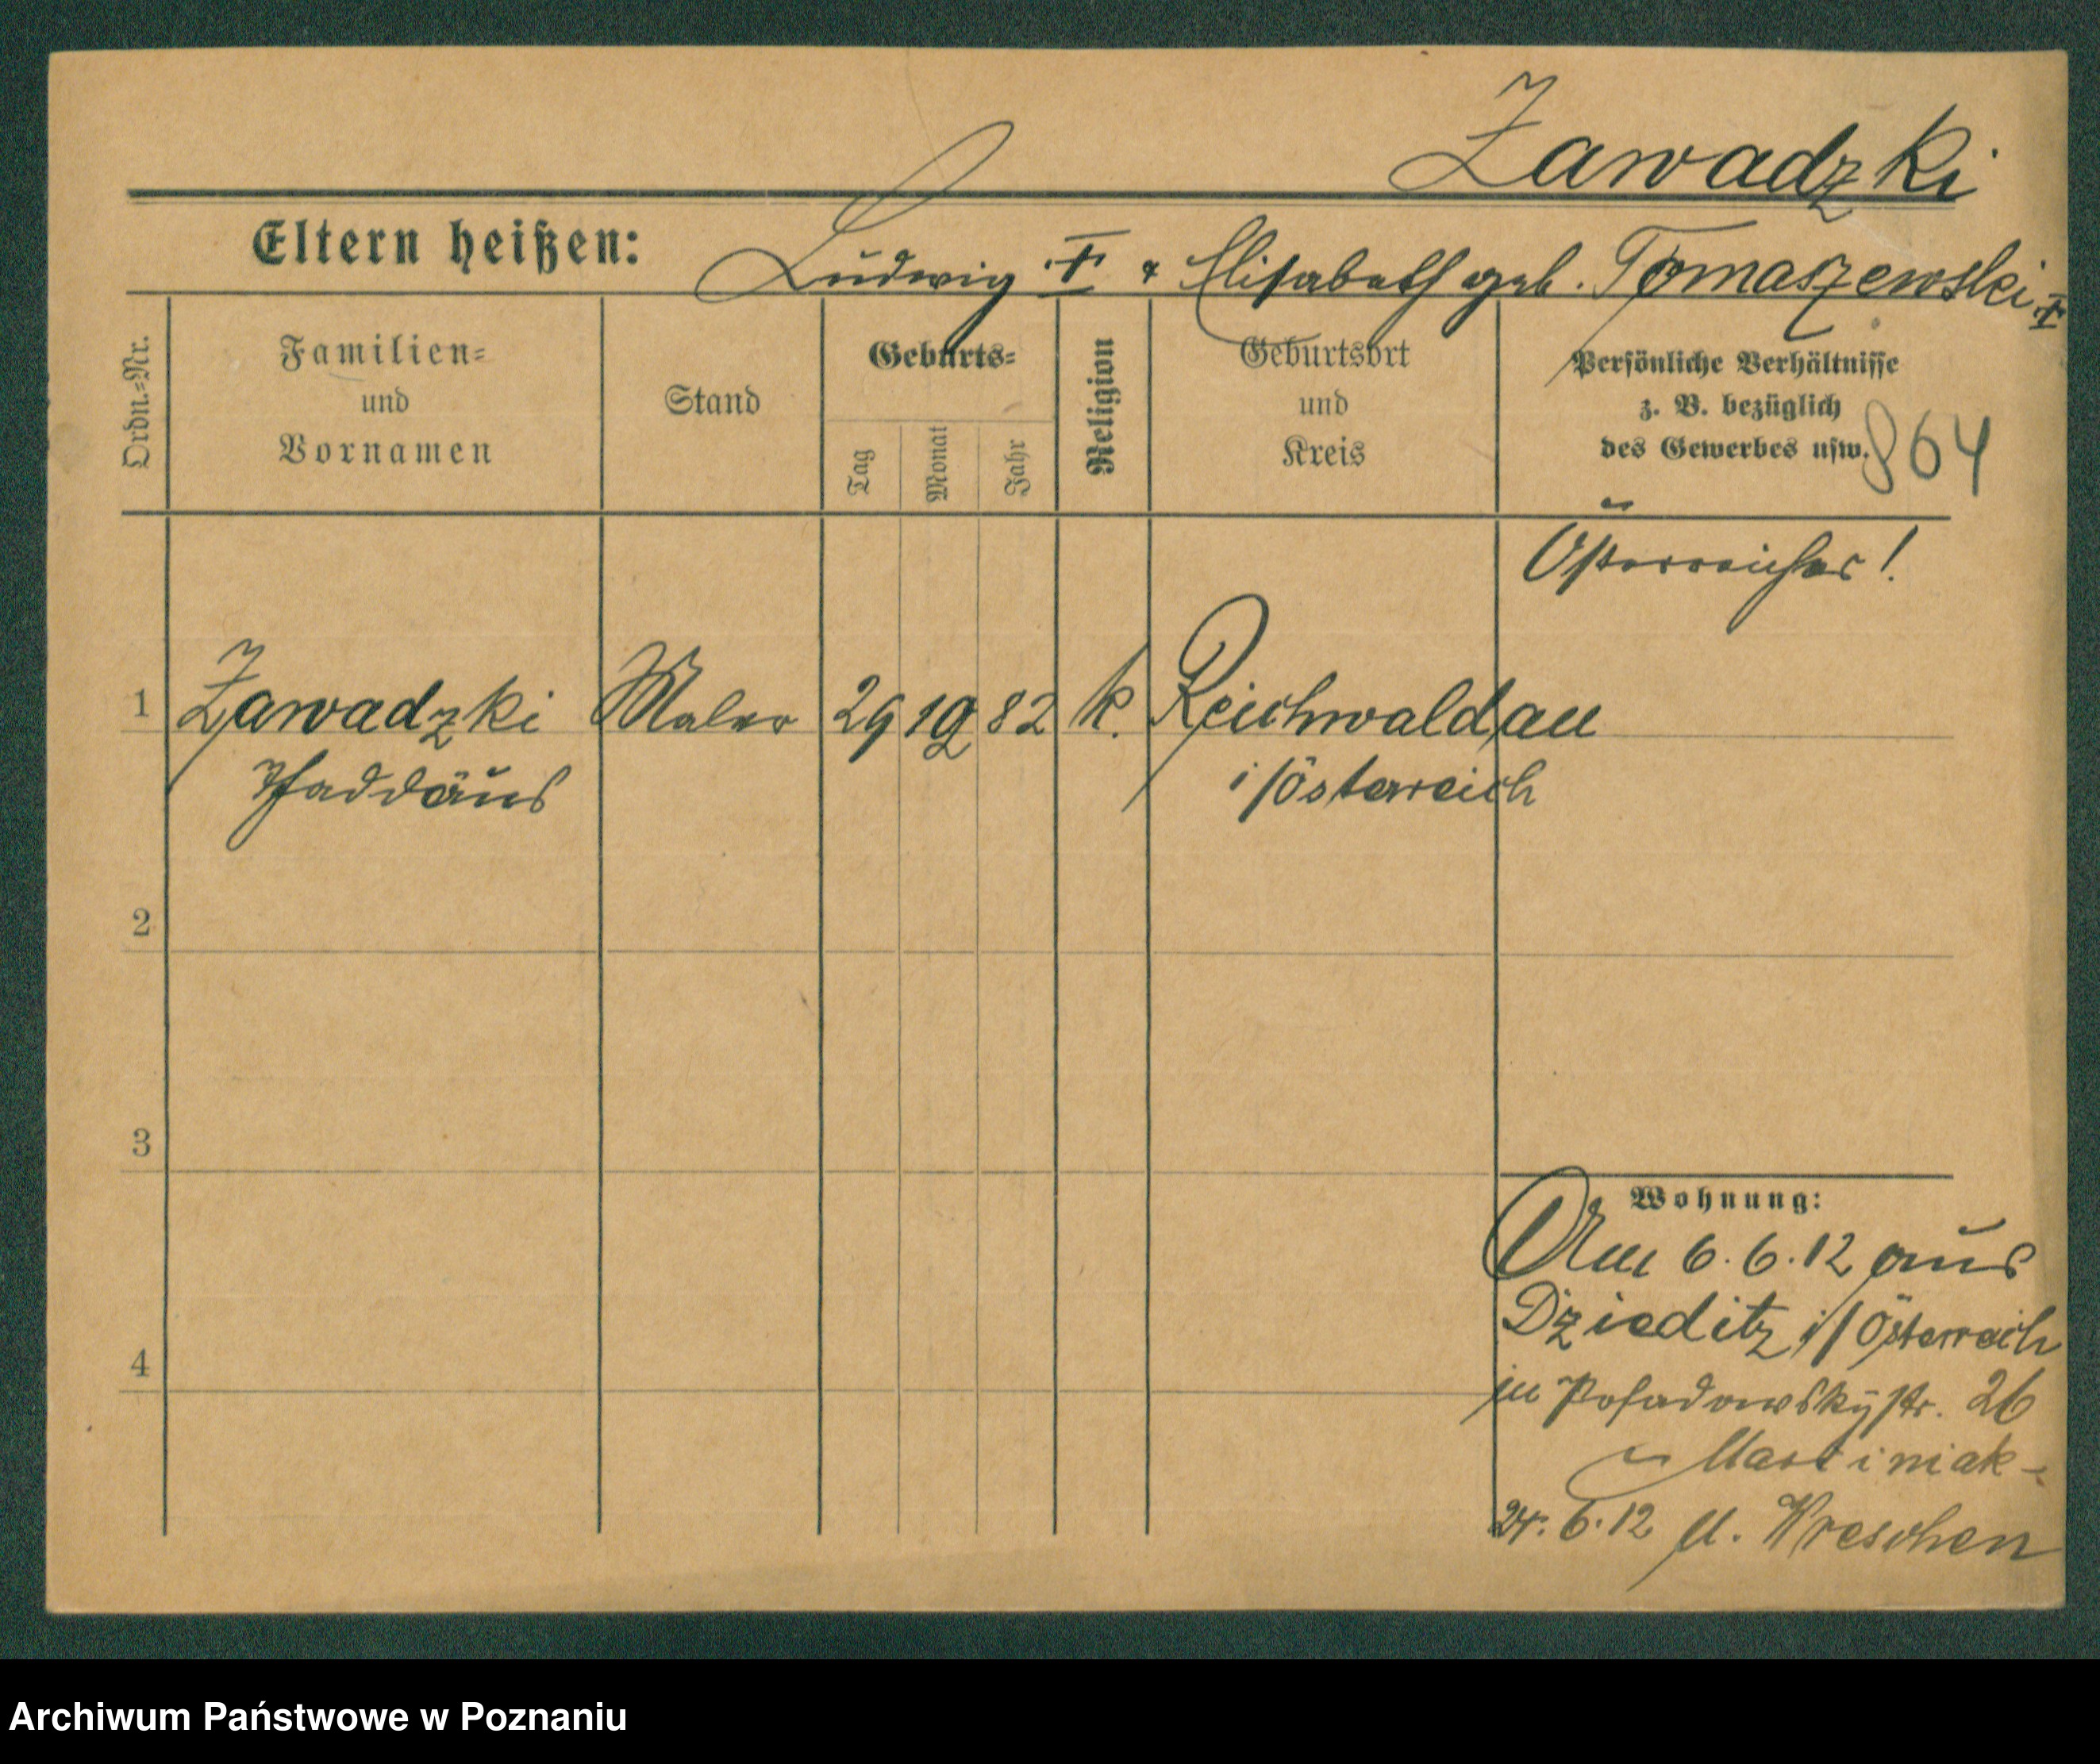 Zawadzki
Eltern heißen: Ludwig † & Elisabeth geb. Tomaszewski †
Ordn.=Nr.
Familien=
und
Vornamen
Stand
Geburts=
Tag
Monat
Jahr
Religion
Geburtsort
und
Kreis
Persönliche Verhältnisse
z. B. bezüglich
des Gewerbes usw.
864
Österreicher!
1 Zawadzki Maler 29 82 k. Reichwaldau
Thaddäus i/Österreich
2
3
4
Wohnung:
Am 6.6.12 aus
Dzieditz i/Österreich
in Posadowskystr. 26
Martiniak-
24.6.12 n. Wreschen
Archiwum Państwowe w Poznaniu